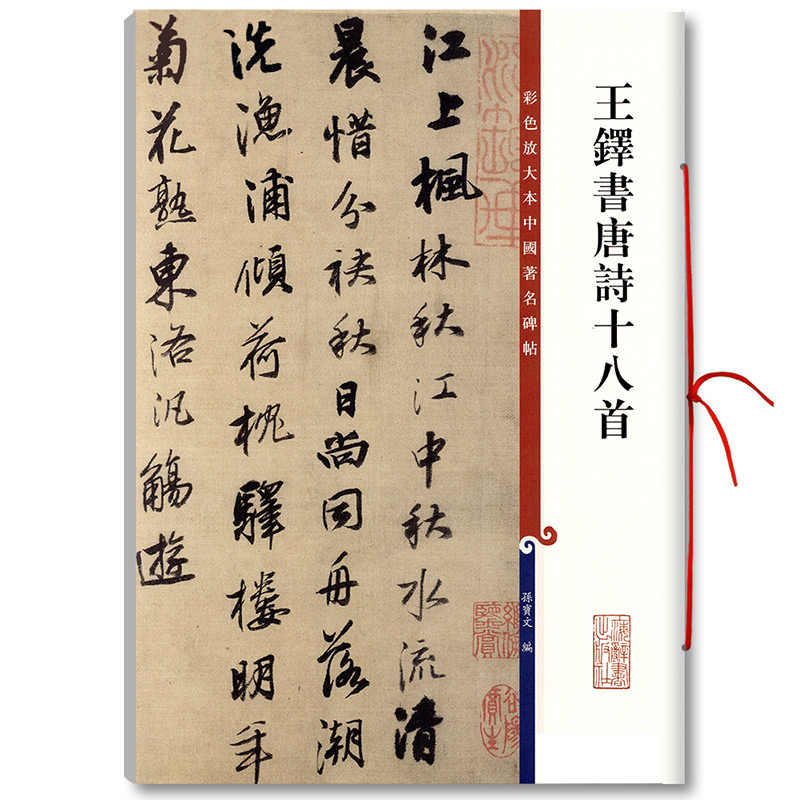 王鐸書唐詩十八首
彩色放大本中國著名碑帖
孫寶文 編
江上楓林秋江中秋水流清
晨惜分袂秋日尚同舟落潮
洗漁浦傾荷枕驛樓明年
菊花熟東洛汎觴遊